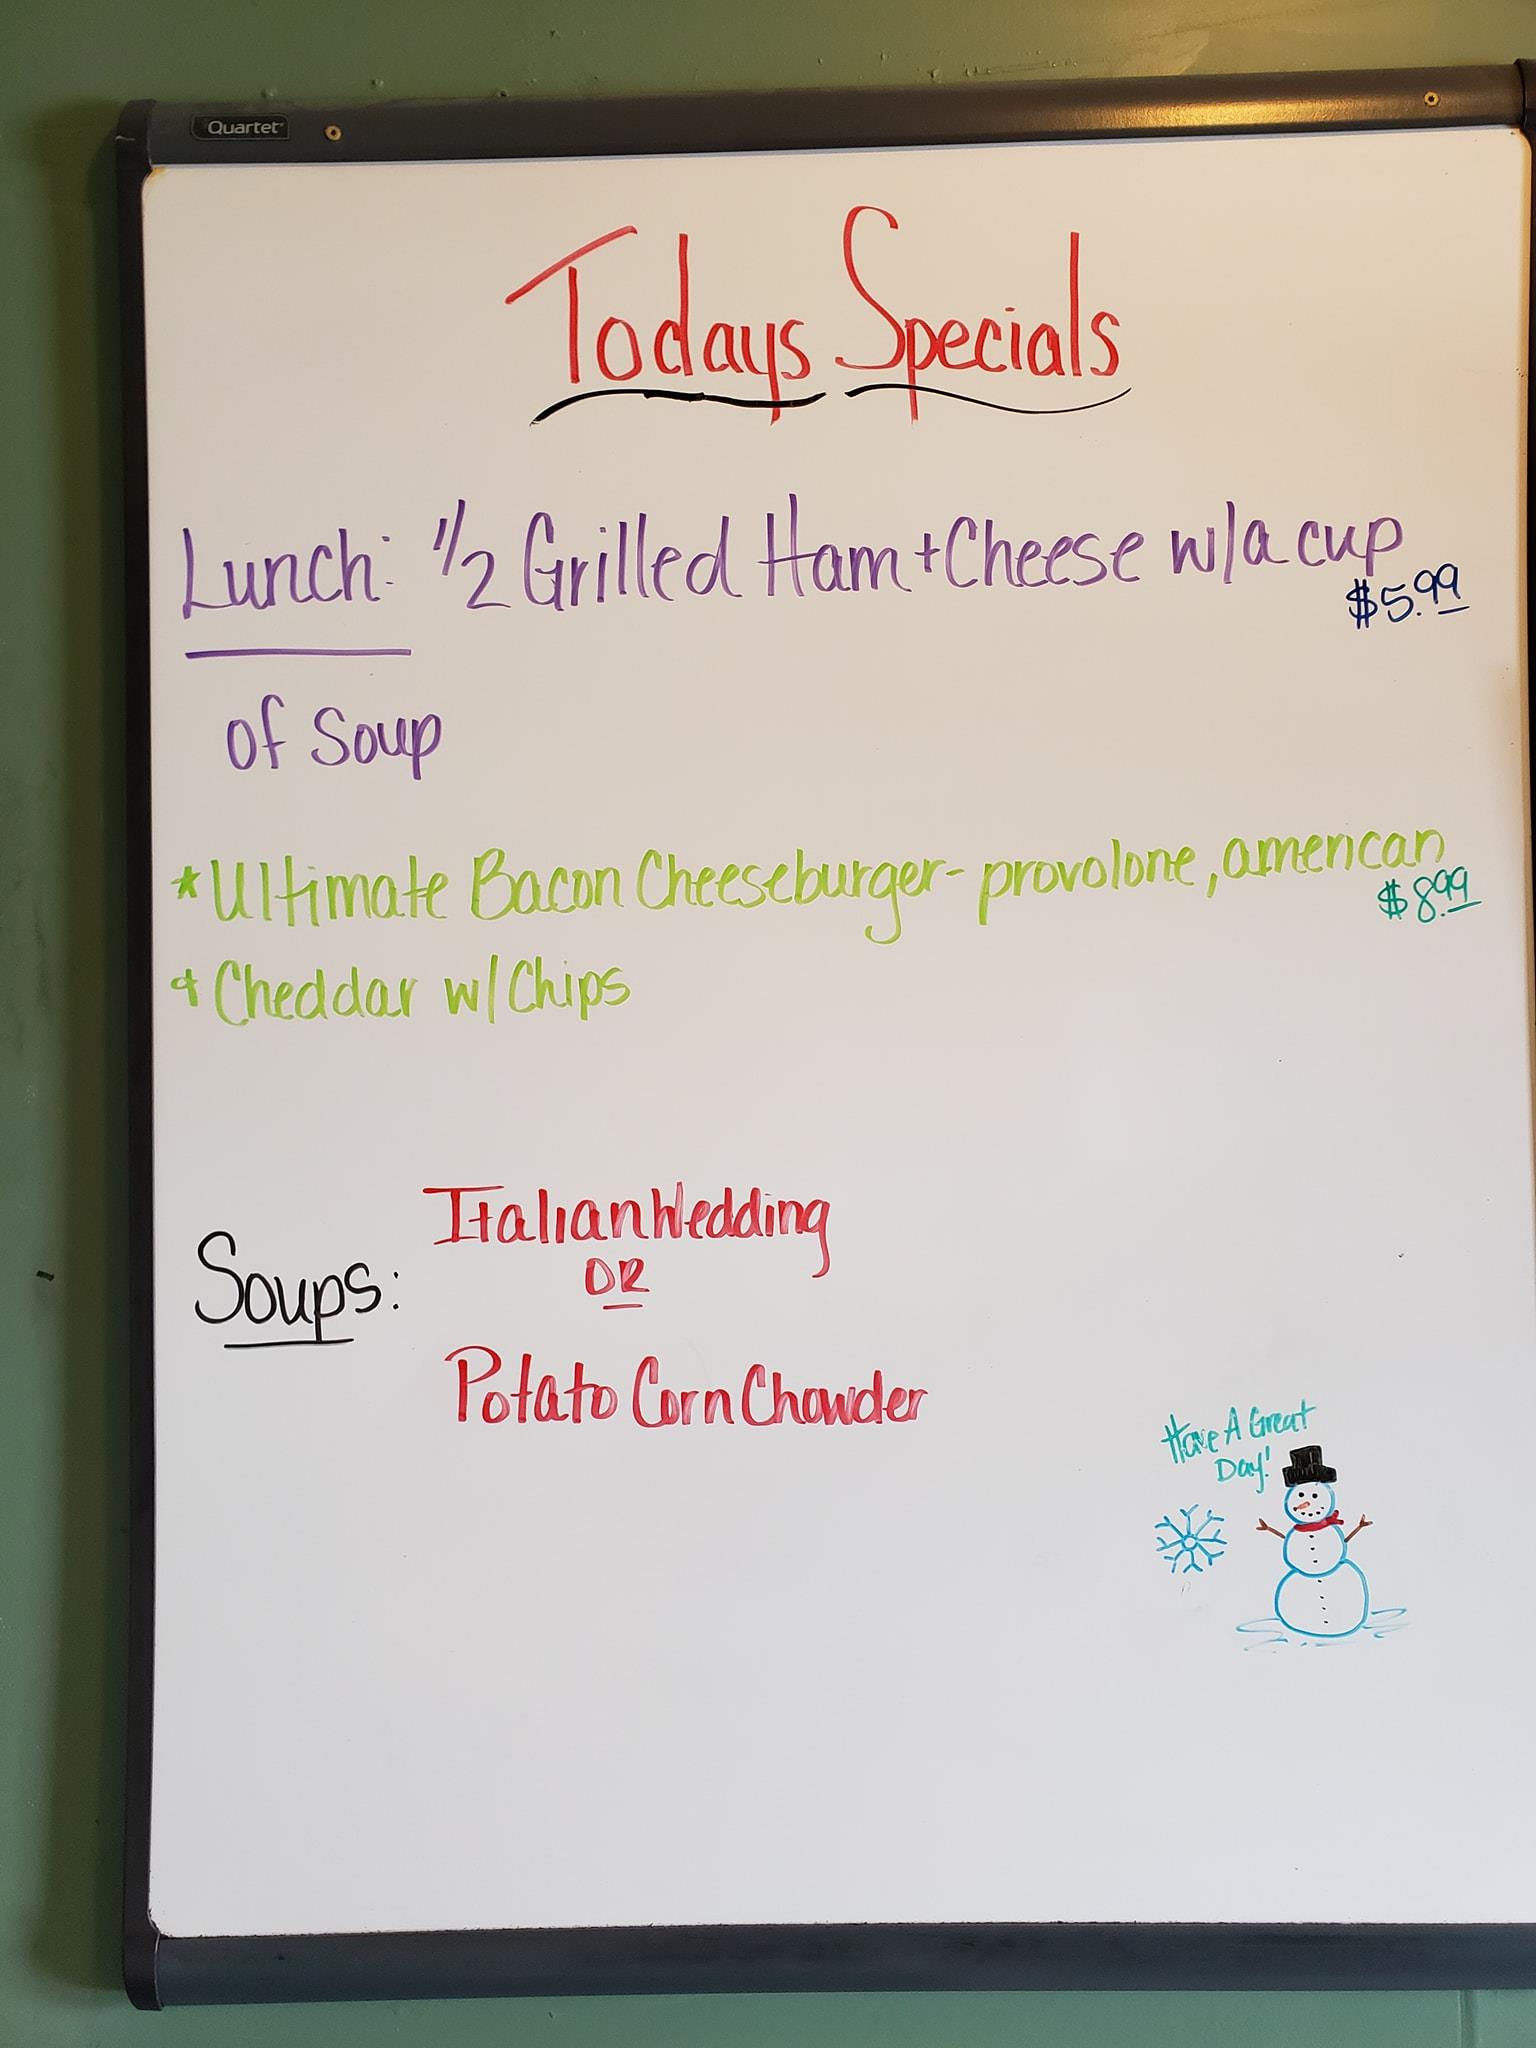 Quartet
Todays Specials
Lunch: 1/2 Grilled Ham + Cheese w/a cup
$5.99
of Soup
* Ultimate Bacon Cheeseburger - provolone, american
$8.99
& Cheddar w/ Chips
Italian Wedding
OR
Soups:
Potato Corn Chowder
Have A Great
Day!